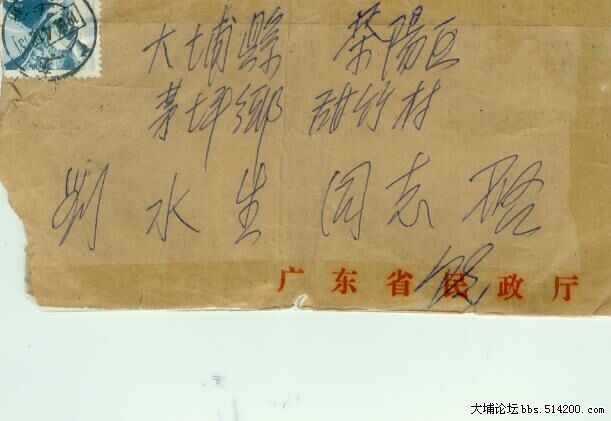 大埔縣 茶陽区
茅坪鄉 甜竹村
刘水生 同志
广东省民政厅
大埔论坛bbs.514200.com